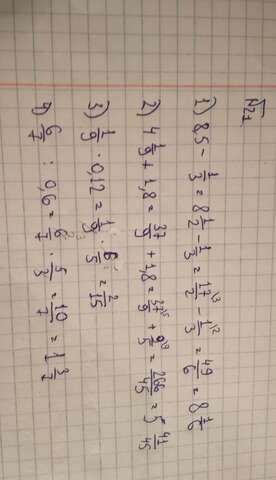 №271
1) 8,5 - 1/3 = 8 1/2 - 1/3 = 17/2 \3 - 1/3 \2 = 49/6 = 8 1/6
2) 4 1/9 + 1,8 = 37/9 + 1,8 = 37/9 \5 + 9/5 \9 = 266/45 = 5 41/45
3) 1/9 · 0,12 = 1/9 · 6/5 = 2/15
4) 6/7 : 0,6 = 6/7 · 5/3 = 10/7 = 1 3/7